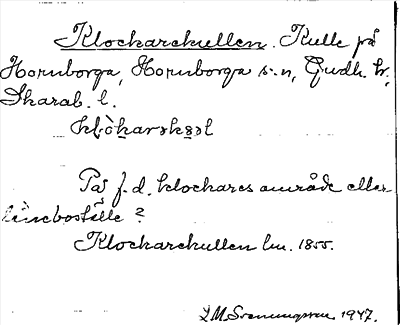 Klockarekullen. Kulle på
Hornborga, Hornborga s:n, Gudh. hr,
Skarab. l.
På f. d. klockares område eller
länsboställe?
Klockarekullen lm. 1855.
1947.